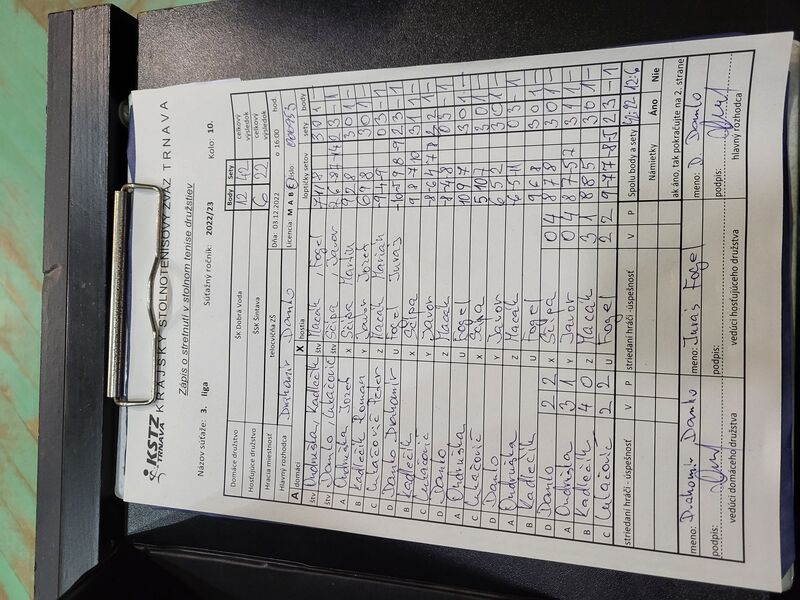 KSTZ TRNAVA KRAJSKÝ STOLNOTENISOVÝ ZVÄZ TRNAVA
Zápis o stretnutí v stolnom tenise družstiev
Názov súťaže: 3. liga Súťažný ročník: 2022/23 Kolo: 10.
Domáce družstvo ŠK Dobrá Voda Body Sety celkový výsledok
12 42
Hosťujúce družstvo ŠSK Šintava 6 22 celkový výsledok
Hracia miestnosť telocvičňa ZŠ Dňa: 03.12.2022 o 16:00 hod.
Hlavný rozhodca Drahomír Danlo Licencia: M A B C číslo:
A domáci X hostia loptičky setov sety body
štv Ondruška, Kadlečík štv Macák, Fogel 3 0 1 -
štv Danlo, Lukačovič štv Sčipa, Javor 2 3 - 1
A Ondruška Jozef X Sčipa Martin 3 0 1 -
B Kadlečík Roman Y Javor Jozef 6 9 8 3 0 1 -
C Lukačovič Peter Z Macák Marián
D Danlo Drahomír U Fogel Juraj 2 3 - 1
B Kadlečík X Sčipa 3 1 1 -
C Lukačovič Y Javor
D Danlo Z Macák
A Ondruška U Fogel 10 9 7 3 0 1 -
C Lukačovič X Sčipa 5 10 7 3 0 1 -
D Danlo Y Javor 6 5 2 3 0 1 -
A Ondruška Z Macák 0 3 - 1
B Kadlečík U Fogel 9 6 8 3 0 1 -
D Danlo 2 2 X Sčipa 0 4 8 7 8 3 0 1 -
A Ondruška 3 1 Y Javor 0 4 8 7 -5 7 3 1 1 -
B Kadlečík 4 0 Z Macák 3 1 8 8 5 3 0 1 -
C Lukačovič 2 2 U Fogel 2 2 9 -7 7 -8 -5 2 3 - 1
striedaní hráči - úspešnosť V P striedaní hráči - úspešnosť V P Spolu body a sety 42:22 12:6
Námietky Áno Nie
ak áno, tak pokračujte na 2. strane
meno: Drahomír Danlo meno: Juraj Fogel meno: D. Danlo
podpis: podpis: podpis:
vedúci domáceho družstva vedúci hosťujúceho družstva hlavný rozhodca